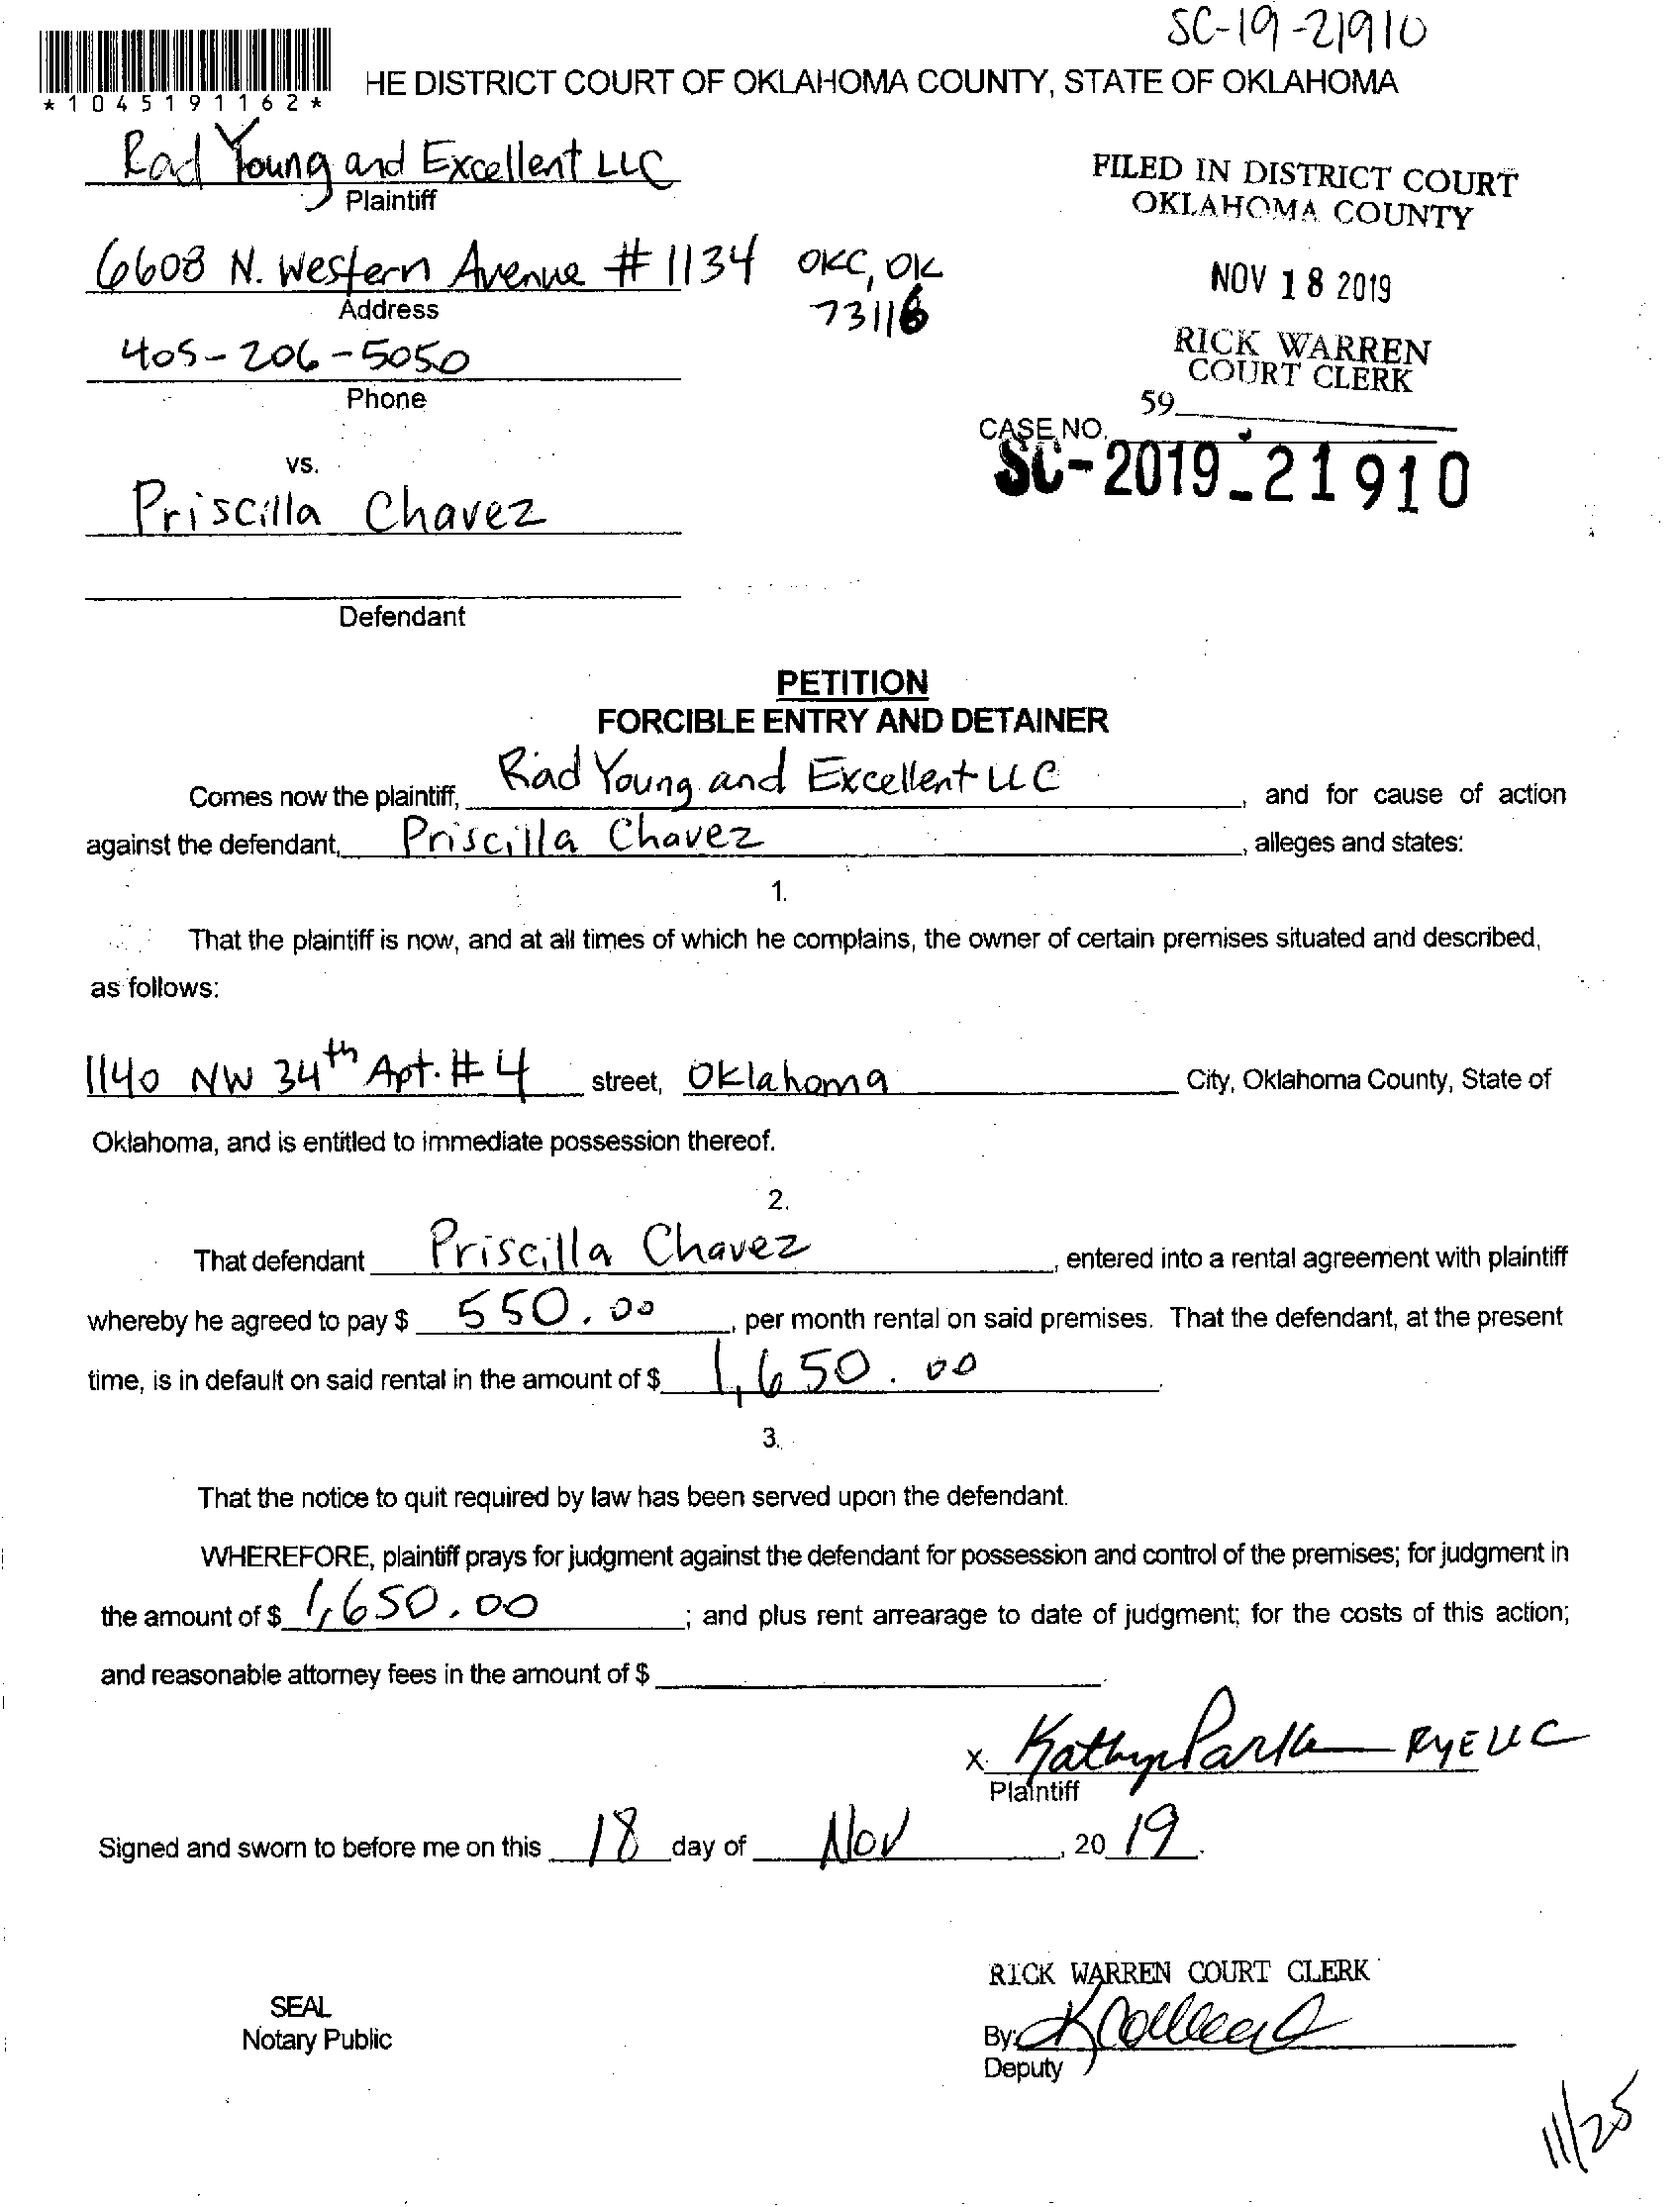 SC-19-21910
*1045191162*
HE DISTRICT COURT OF OKLAHOMA COUNTY, STATE OF OKLAHOMA
Rad Young and Excellent LLC
Plaintiff
FILED IN DISTRICT COURT
OKLAHOMA COUNTY
6608 N. Western Avenue # 1134 OKC, OK
73116
Address
NOV 18 2019
405-206-5050
Phone
RICK WARREN
COURT CLERK
59
CASE NO.
SC-2019-21910
vs.
Priscilla Chavez
Defendant
PETITION
FORCIBLE ENTRY AND DETAINER
Comes now the plaintiff, Rad Young and Excellent LLC, and for cause of action
against the defendant, Priscilla Chavez, alleges and states:
1.
That the plaintiff is now, and at all times of which he complains, the owner of certain premises situated and described,
as follows:
1140 NW 34th Apt. # 4 street, Oklahoma City, Oklahoma County, State of
Oklahoma, and is entitled to immediate possession thereof.
2.
That defendant Priscilla Chavez, entered into a rental agreement with plaintiff
whereby he agreed to pay $ 550.00, per month rental on said premises. That the defendant, at the present
time, is in default on said rental in the amount of $ 1,650.00.
3.
That the notice to quit required by law has been served upon the defendant.
WHEREFORE, plaintiff prays for judgment against the defendant for possession and control of the premises; for judgment in
the amount of $ 1,650.00; and plus rent arrearage to date of judgment; for the costs of this action;
and reasonable attorney fees in the amount of $ .
X Kathryn Parker RYELLC
Plaintiff
Signed and sworn to before me on this 18 day of Nov, 2019.
RICK WARREN COURT CLERK
SEAL
Notary Public
By:
Deputy
11/25